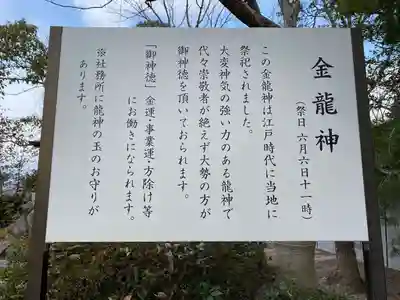 金龍神
(祭日 六月六日十一時)
この金龍神は江戸時代に当地に
祭祀されました。
大変神気の強い力のある龍神で
代々崇敬者が絶えず大勢の方が
御神徳を頂いておられます。
「御神徳」金運・事業運・方除け等
にお働きになられます。
※社務所に龍神の玉のお守りが
あります。